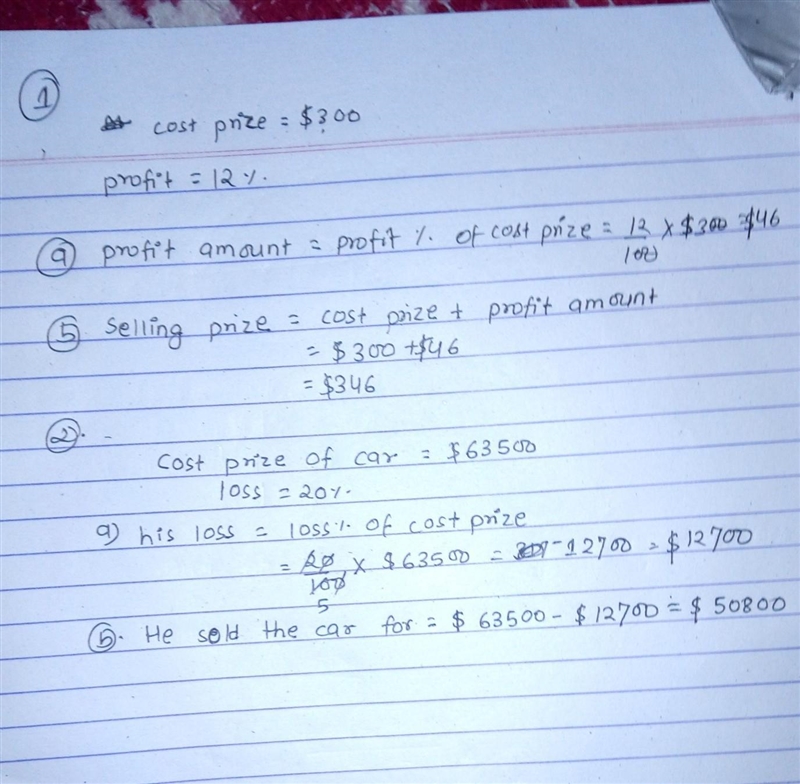 1
cost prize = $300
profit = 12%.
a profit amount = profit % of cost prize = 12/100 X $300 = $46
b Selling prize = cost prize + profit amount
= $300 + $46
= $346
2. -
Cost prize of car = $63500
loss = 20%.
a) his loss = loss% of cost prize
= 20/100 X $63500 = 12700 = $12700
5
b. He sold the car for = $ 63500 - $12700 = $ 50800